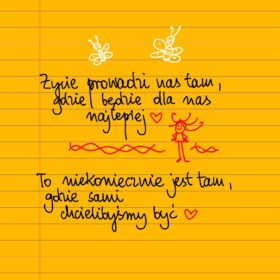 Życie prowadzi nas tam,
gdzie będzie dla nas
najlepiej
To niekoniecznie jest tam,
gdzie sami
chcielibyśmy być